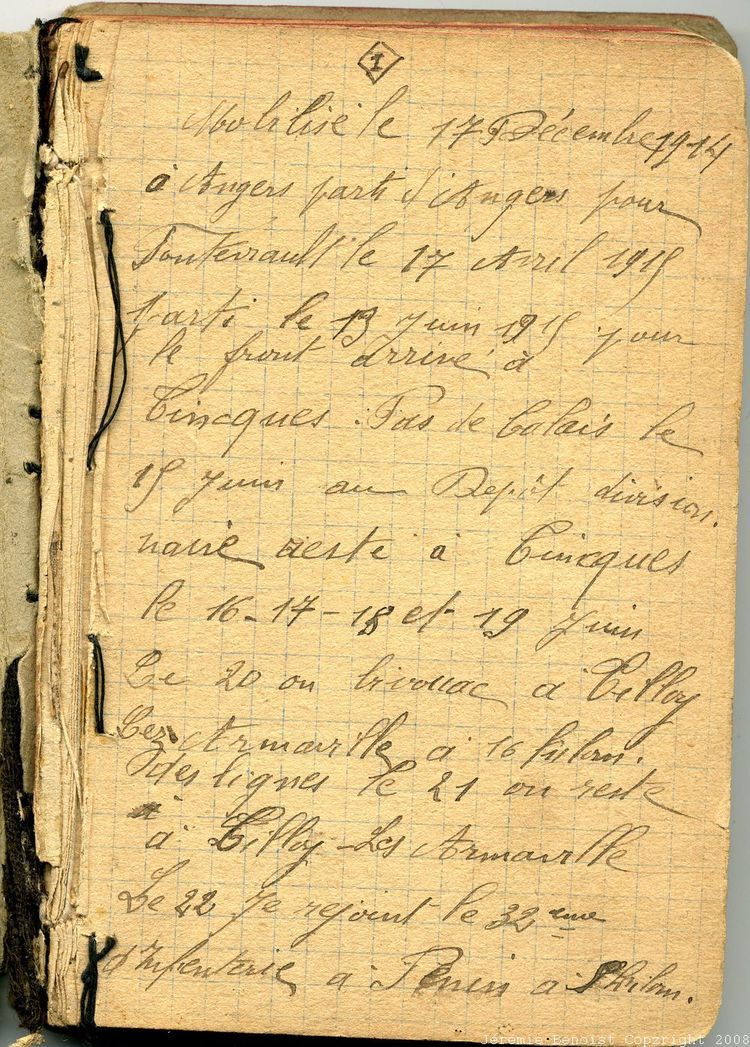 1
Mobilisé le 17 Décembre 1914
à Angers parti d'Angers pour
Fontevrault le 17 Avril 1915
parti le 13 Juin 1915 pour
le front arrivé à
Tincques . Pas de Calais le
15 Juin au Depôt division.
naire resté à Tincques
le 16-17-18 et 19 Juin
Le 20 on bivouac à Tilloy
Lez Armaville à 16 kilom.
des lignes le 21 on reste
à Tilloy-Les Armaville
Le 22 Je rejoint le 32 eme
d'Infenterie à Penin à kilom.
Jérémie Benoist Copyright 2008